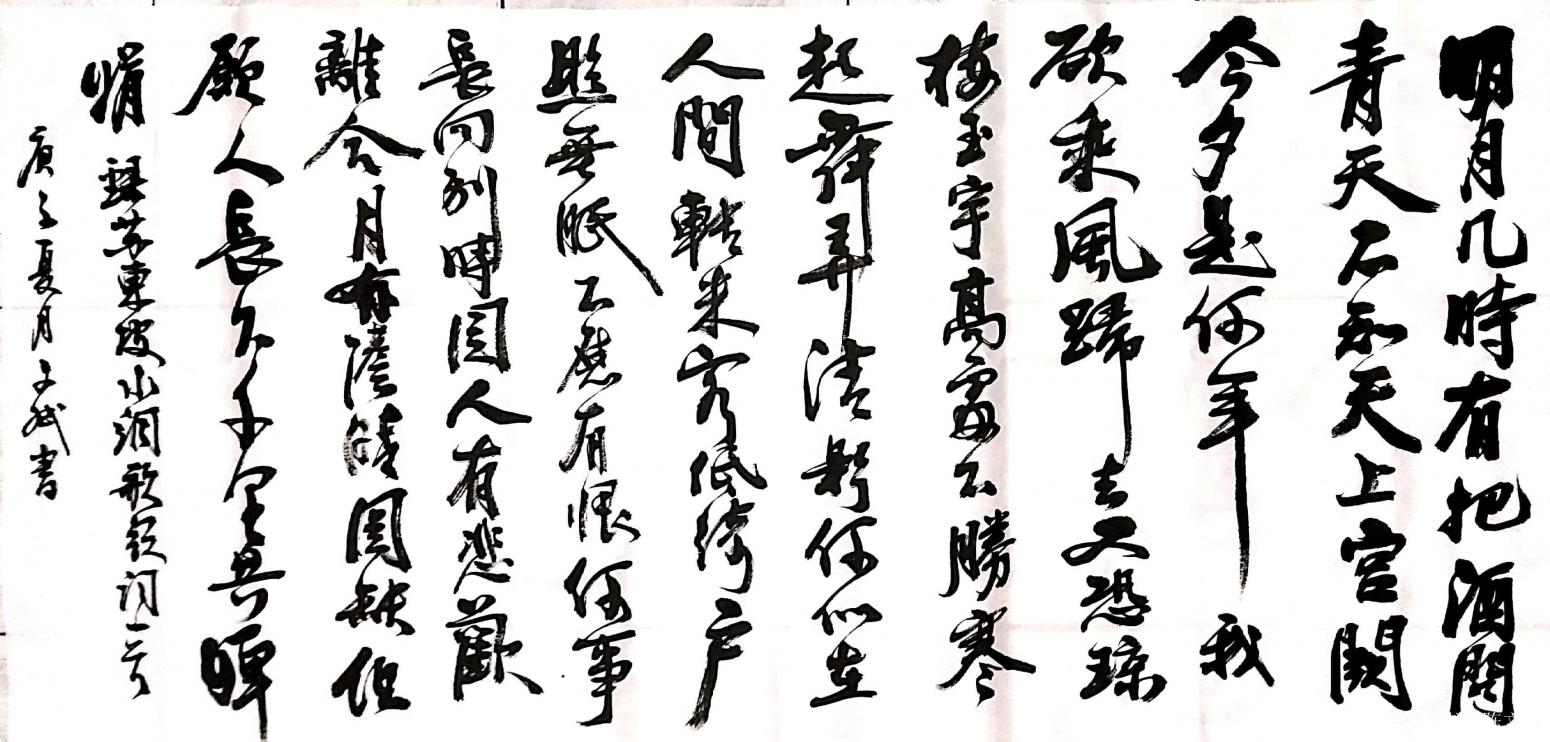 明月几時有把酒問
青天不知天上宮闕
今夕是何年我
欲乘風歸去又恐琼
樓玉宇高處不勝寒
起舞弄清影何似在
人間轉朱閣低綺戶
照無眠不應有恨何事
長向別時圓人有悲歡
離合月有陰晴圓缺但
願人長久千里共嬋
娟 錄苏東坡水調歌頭詞一首
庚子夏月文書